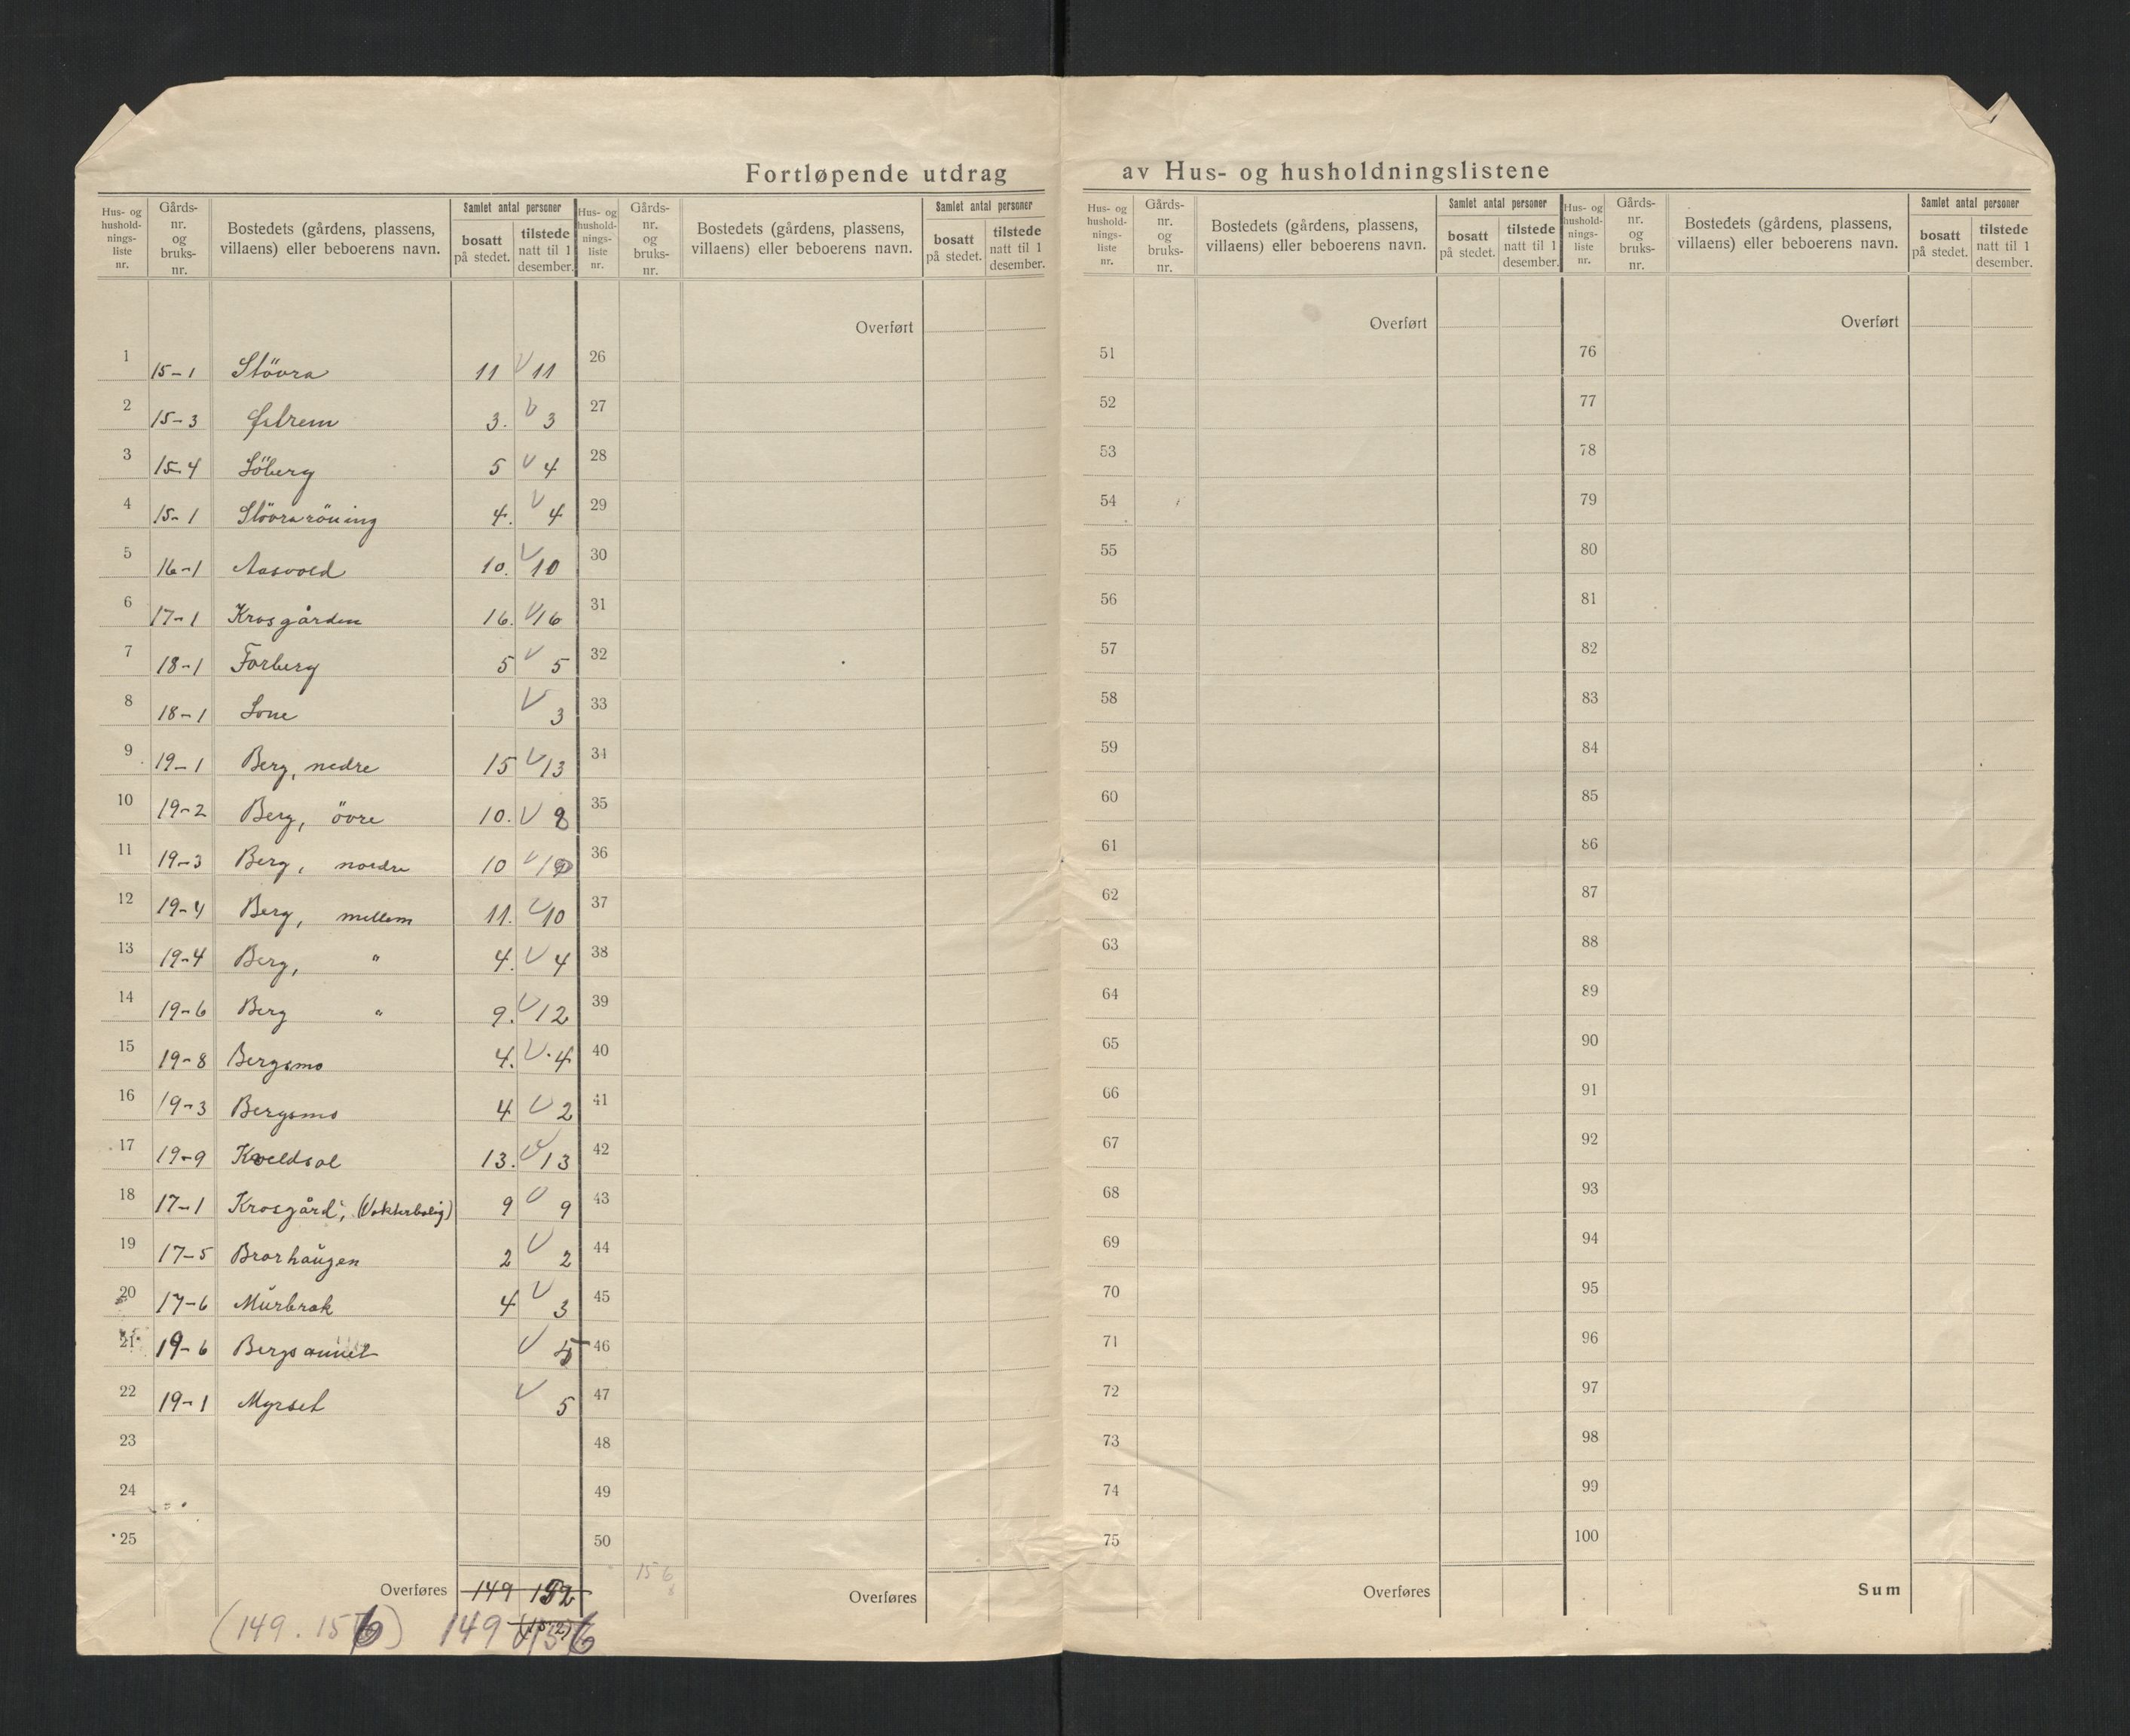 Fortløpende utdrag av Hus- og husholdningslistene
Hus- og hushold- nings- liste nr. Gårds- nr. og bruks- nr. Bostedets (gårdens, plassens, villaens) eller beboerens navn. Samlet antal personer bosatt på stedet. tilstede natt til 1 desember.
Hus- og hushold- nings- liste nr. Gårds- nr. og bruks- nr. Bostedets (gårdens, plassens, villaens) eller beboerens navn. Samlet antal personer bosatt på stedet. tilstede natt til 1 desember.
Hus- og hushold- nings- liste nr. Gårds- nr. og bruks- nr. Bostedets (gårdens, plassens, villaens) eller beboerens navn. Samlet antal personer bosatt på stedet. tilstede natt til 1 desember.
Hus- og hushold- nings- liste nr. Gårds- nr. og bruks- nr. Bostedets (gårdens, plassens, villaens) eller beboerens navn. Samlet antal personer bosatt på stedet. tilstede natt til 1 desember.
Overført Overført Overført
1 15-1 Stövra 11 11 26 51 76
2 15-3 Østrem 3. 3 27 52 77
3 15-4 Söberg 5 4 28 53 78
4 15-1 Stövraröning 4. 4 29 54 79
5 16-1 Aasvold 10. 10 30 55 80
6 17-1 Krosgården 16. 16 31 56 81
7 18-1 Forberg 5 5 32 57 82
8 18-1 Lone 3 33 58 83
9 19-1 Berg, nedre 15 13 34 59 84
10 19-2 Berg, övre 10. 8 35 60 85
11 19-3 Berg, nordre 10 36 61 86
12 19-4 Berg, mellem 11. 10 37 62 87
13 19-4 Berg, " 4. 4 38 63 88
14 19-6 Berg " 9. 12 39 64 89
15 19-8 Bergsmo 4. 4 40 65 90
16 19-3 Bergsmo 4 2 41 66 91
17 19-9 Kveldsol 13. 13 42 67 92
18 17-1 Krosgård, (Vokterbolig) 9 9 43 68 93
19 17-5 Brorhaugen 2 2 44 69 94
20 17-6 Murbrak 4 3 45 70 95
21 19-6 Bergsaunet 5 46 71 96
22 19-1 Myrset 5 47 72 97
23 48 73 98
24 49 74 99
25 50 75 100
156
Overføres 149 152 Overføres Overføres Sum
(149. 156) 149 156